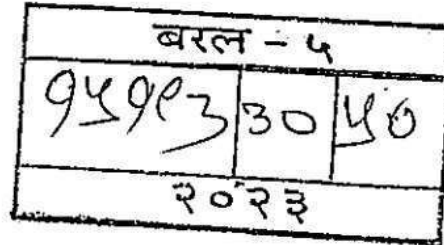 बरल - ५
१५९९३ ३० ५०
२०२३